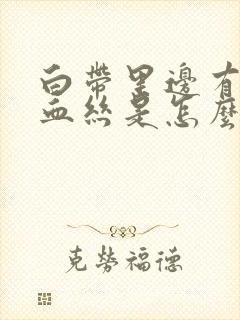 白帶里邊有
血絲是怎麼
克勞福德